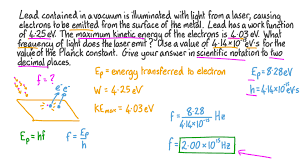 Lead contained in a vacuum is illuminated with light from a laser, causing
electrons to be emitted from the surface of the metal. Lead has a work function
of 4.25 eV. The maximum kinetic energy of the electrons is 4.03 eV. What
frequency of light does the laser emit? Use a value of 4.14×10⁻¹⁵ eV·s for the
value of the Planck constant. Give your answer in scientific notation to two
decimal places.
f = ?
e⁻
e⁻
Eₚ = energy transferred to electron
W = 4.25eV
KEₘₐₓ = 4.03eV
Eₚ = 8.28eV
h = 4.14×10⁻¹⁵eVs
Eₚ = hf
f = Eₚ/h
f = 8.28/4.14×10⁻¹⁵ Hz
f = 2.00×10¹⁵ Hz